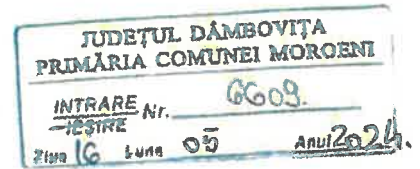 JUDEȚUL DÂMBOVIȚA
PRIMĂRIA COMUNEI MOROENI
INTRARE Nr. 6609.
IEȘIRE
Ziua 16 Luna 05 Anul 2024.